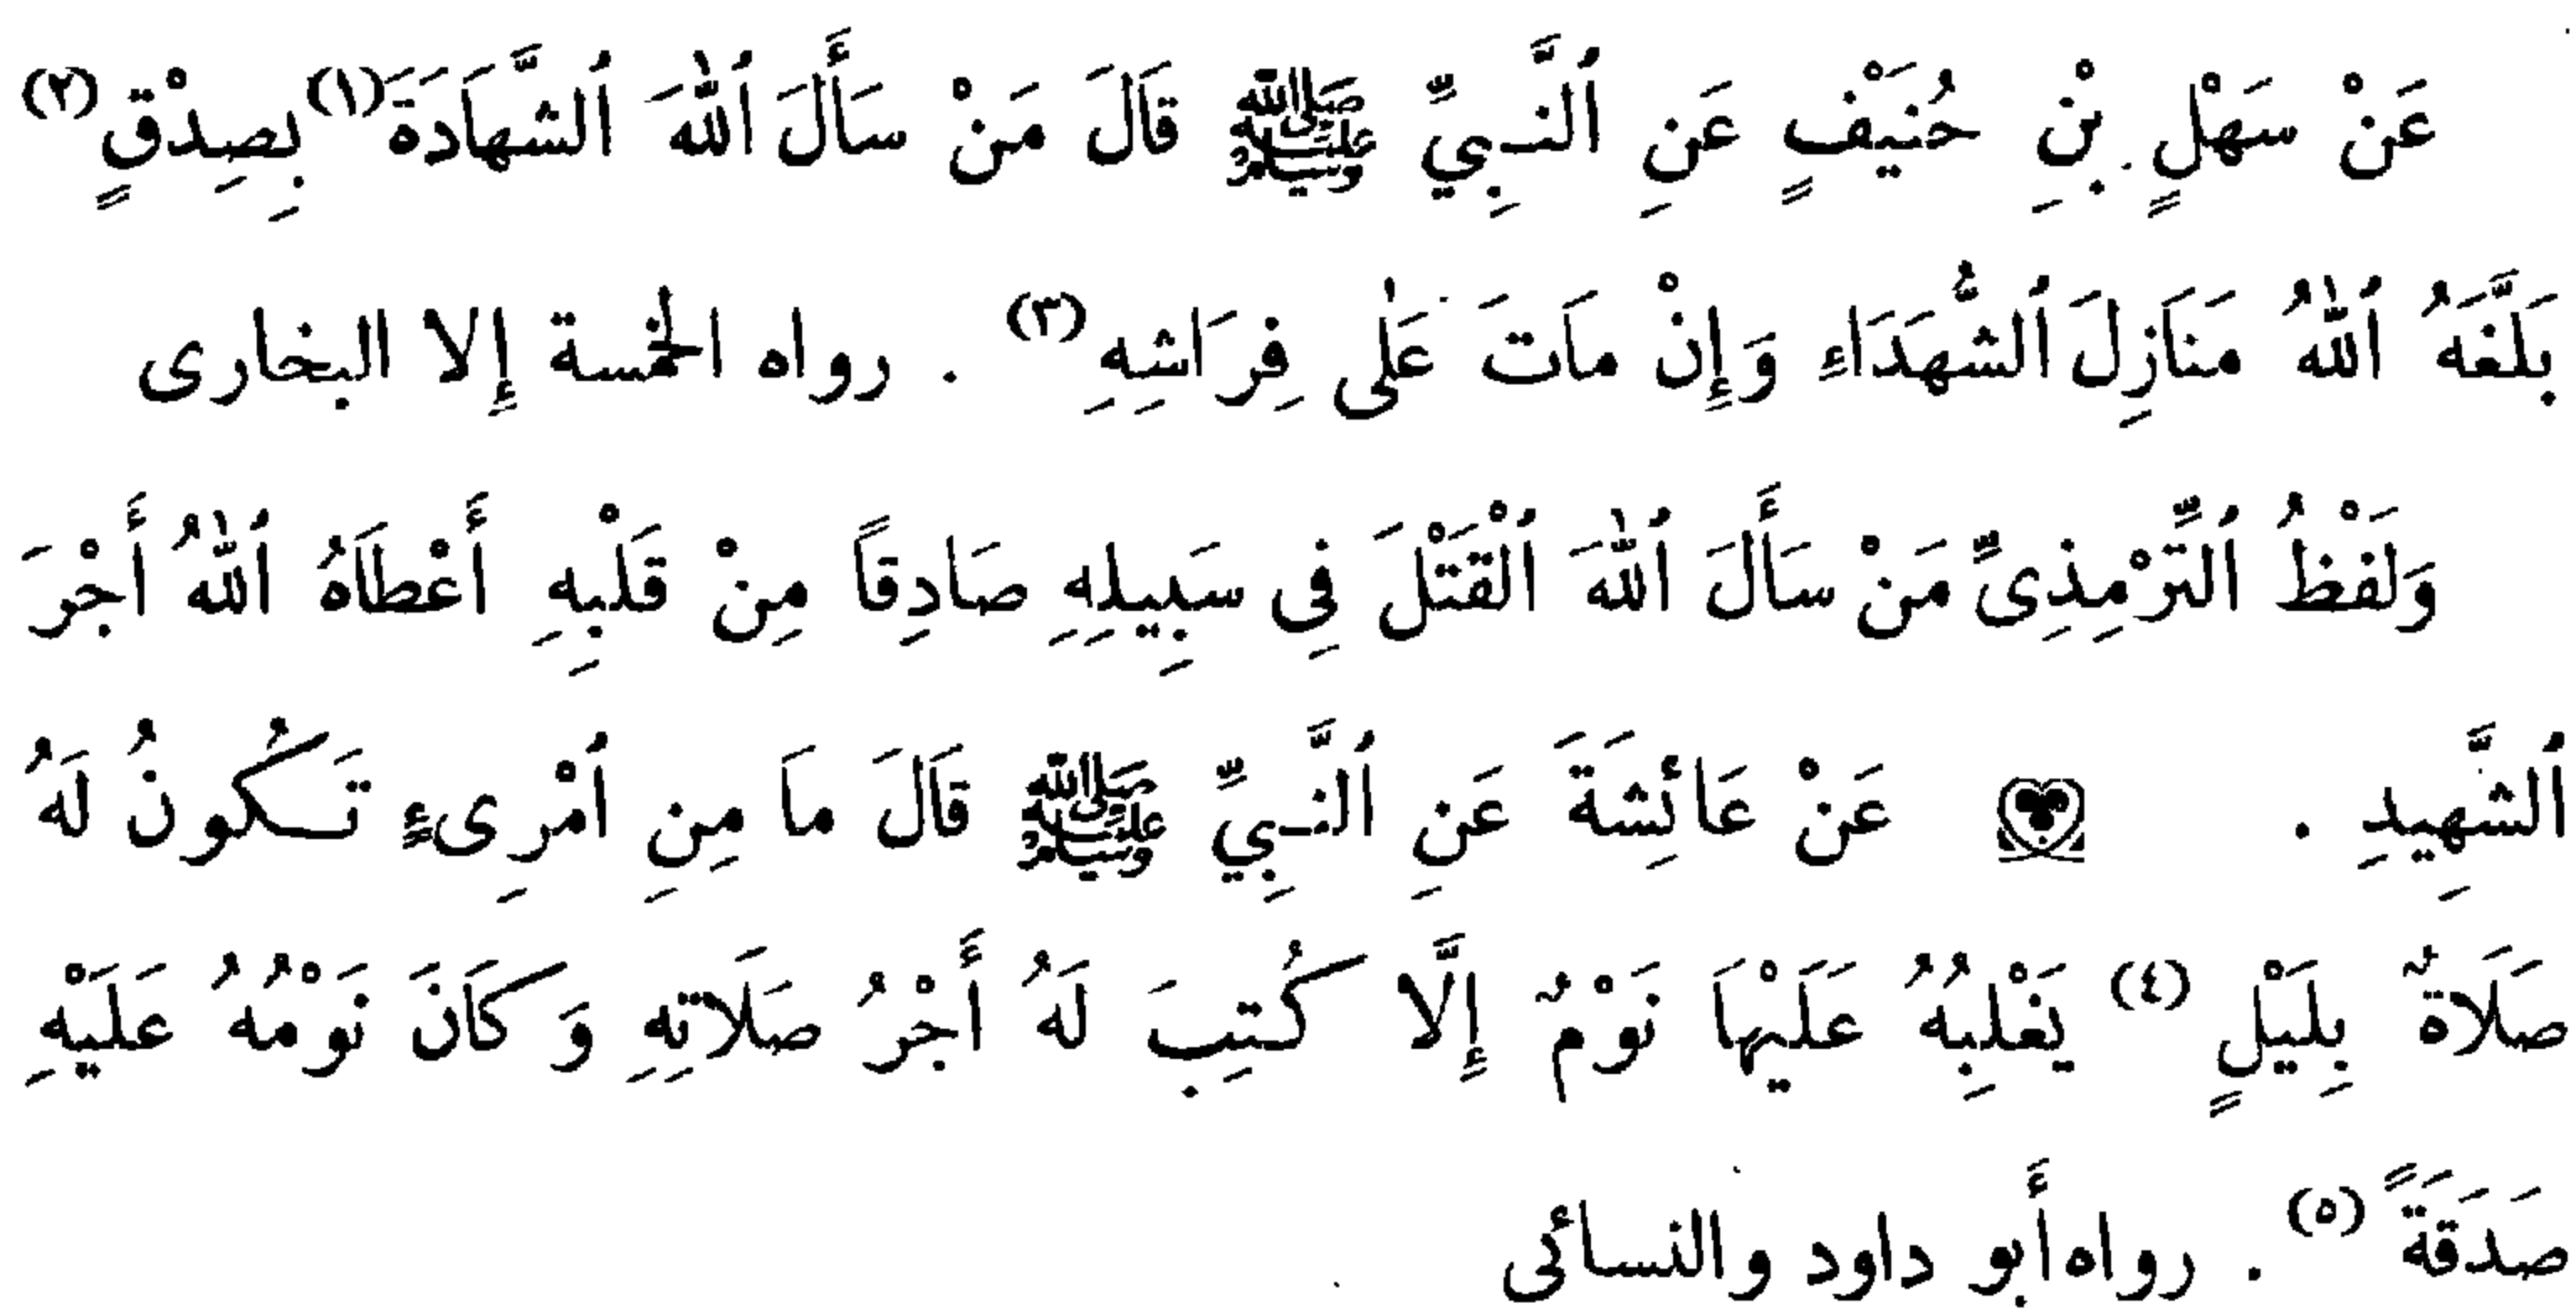 عَنْ سَهْلِ بْنِ حُنَيْفٍ عَنِ ٱلنَّبِيِّ ﷺ قَالَ مَنْ سَأَلَ ٱللهَ ٱلشَّهَادَةَ (١) بِصِدْقٍ (٢)
بَلَّغَهُ ٱللهُ مَنَازِلَ ٱلشُّهَدَاءِ وَإِنْ مَاتَ عَلَى فِرَاشِهِ (٣) . رواه الخمسة إلا البخارى
وَلَفْظُ ٱلتِّرْمِذِىِّ مَنْ سَأَلَ ٱللهَ ٱلْقَتْلَ فِى سَبِيلِهِ صَادِقًا مِنْ قَلْبِهِ أَعْطَاهُ ٱللهُ أَجْرَ
ٱلشَّهِيدِ . عَنْ عَائِشَةَ عَنِ ٱلنَّبِيِّ ﷺ قَالَ مَا مِنِ ٱمْرِىءٍ تَكُونُ لَهُ
صَلَاةٌ بِلَيْلٍ (٤) يَغْلِبُهُ عَلَيْهَا نَوْمٌ إِلَّا كُتِبَ لَهُ أَجْرُ صَلَاتِهِ وَكَانَ نَوْمُهُ عَلَيْهِ
صَدَقَةً (٥) . رواه أَبو داود والنسائى